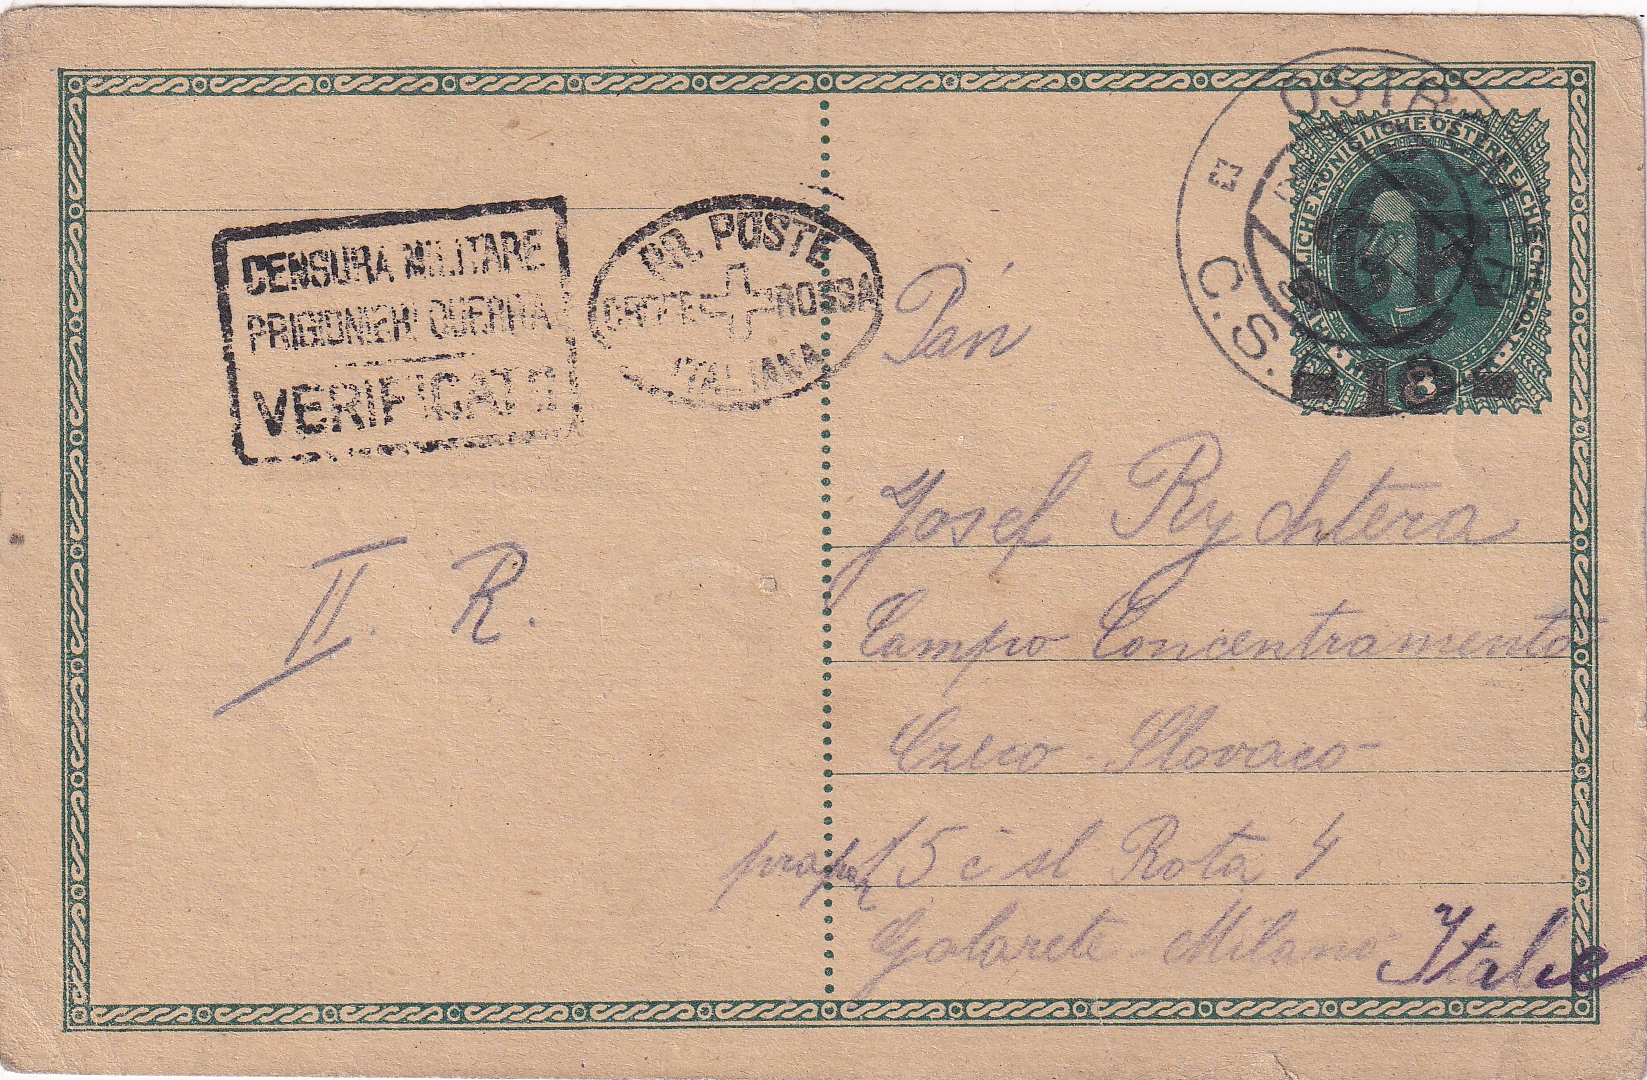 CENSURA MILITARE
PRIGIONIERI GUERRA
VERIFICATO
PR. POSTE
CROCE ROSSA
ITALIANA
OSTR
Č.S.
KÖNIGLICHE ÖSTERREICHISCHE POST
8
18
Pán
Josef Rychtera
Campo Concentramento
Czeco-Slovaco
II. R.
15 č sl Rota 4
Golarete - Milano Italie